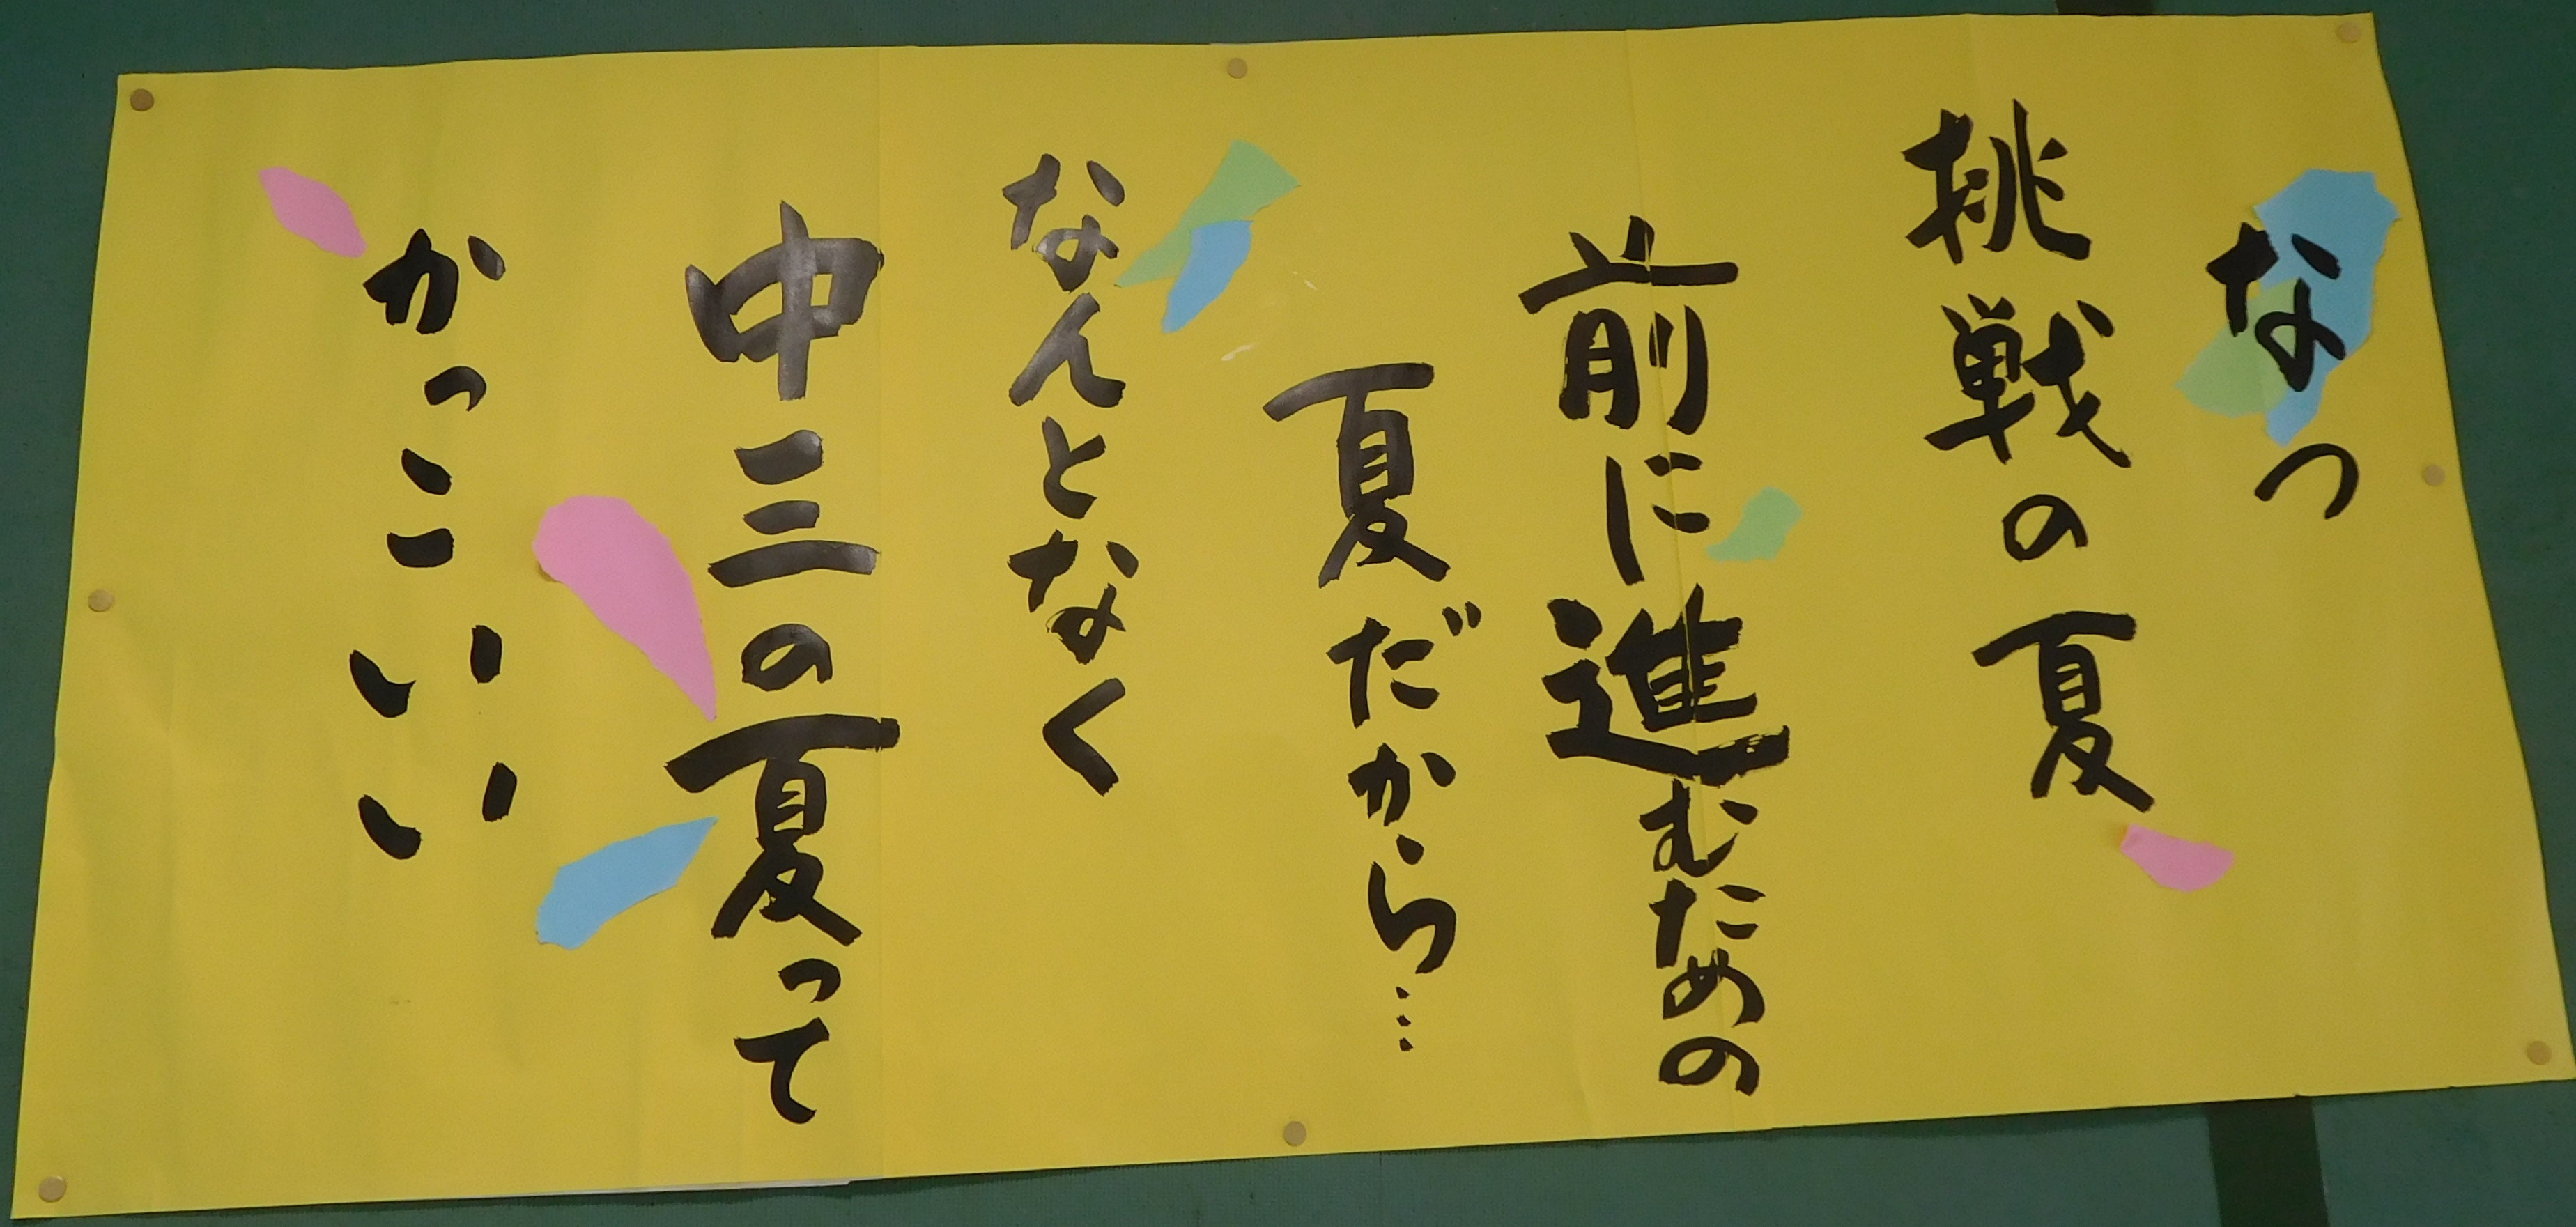 なつ
挑戦の夏
前に進むための
夏だから…
なんとなく
中三の夏って
かっこいい